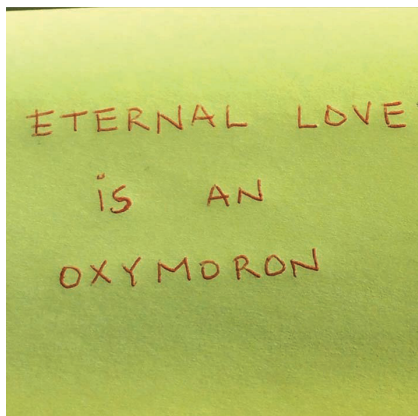 ETERNAL LOVE
iS AN
OXYMORON